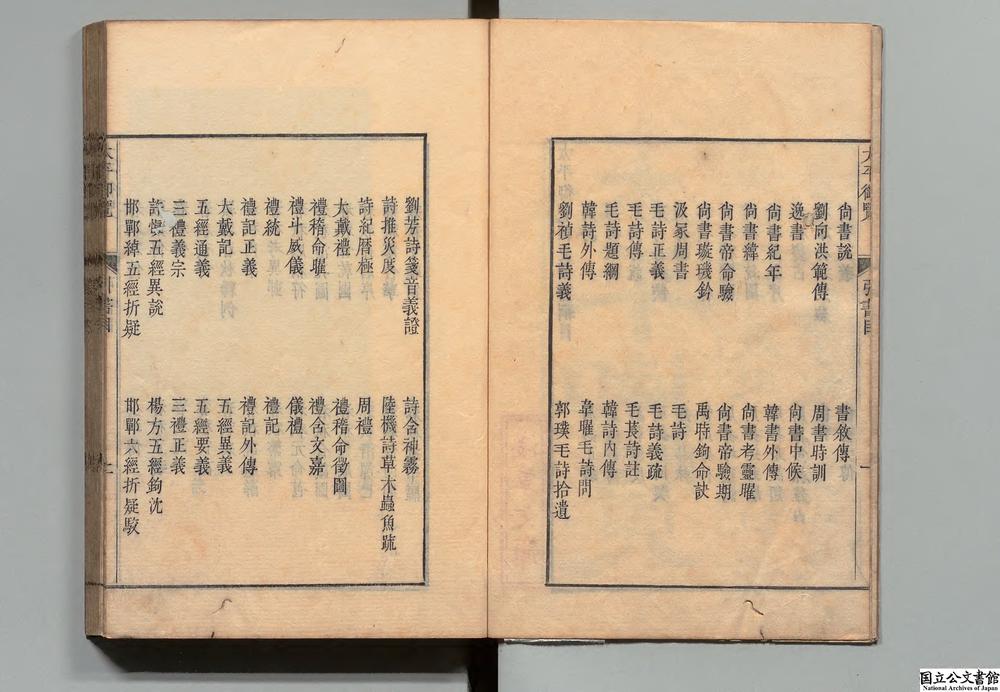 尙書說
書敘傳
劉向洪範傳
周書時訓
逸書
尙書中候
尙書紀年
韓書外傳
尙書緯
尙書考靈曜
尙書帝命驗
尙書帝驗期
尙書璇璣鈐
禹時鉤命訣
汲冢周書
毛詩
毛詩正義
毛詩義疏
毛詩傳
毛萇詩註
毛詩題綱
韓詩內傳
韓詩外傳
韋曜毛詩問
劉禎毛詩義
郭璞毛詩拾遺
劉芳詩箋音義證
詩含神霧
詩推災度
陸機詩草木蟲魚疏
詩紀曆樞
周禮
大戴禮
禮稽命徵圖
禮稽命曜
禮含文嘉
禮斗威儀
儀禮
禮統
禮記
禮記正義
禮記外傳
大戴記
五經異義
五經通義
五經要義
三禮義宗
三禮正義
許愼五經異說
楊方五經鉤沈
邯鄲綽五經折疑
邯鄲六經折疑駮
太平御覽
國立公文書館
National Archives of Japan